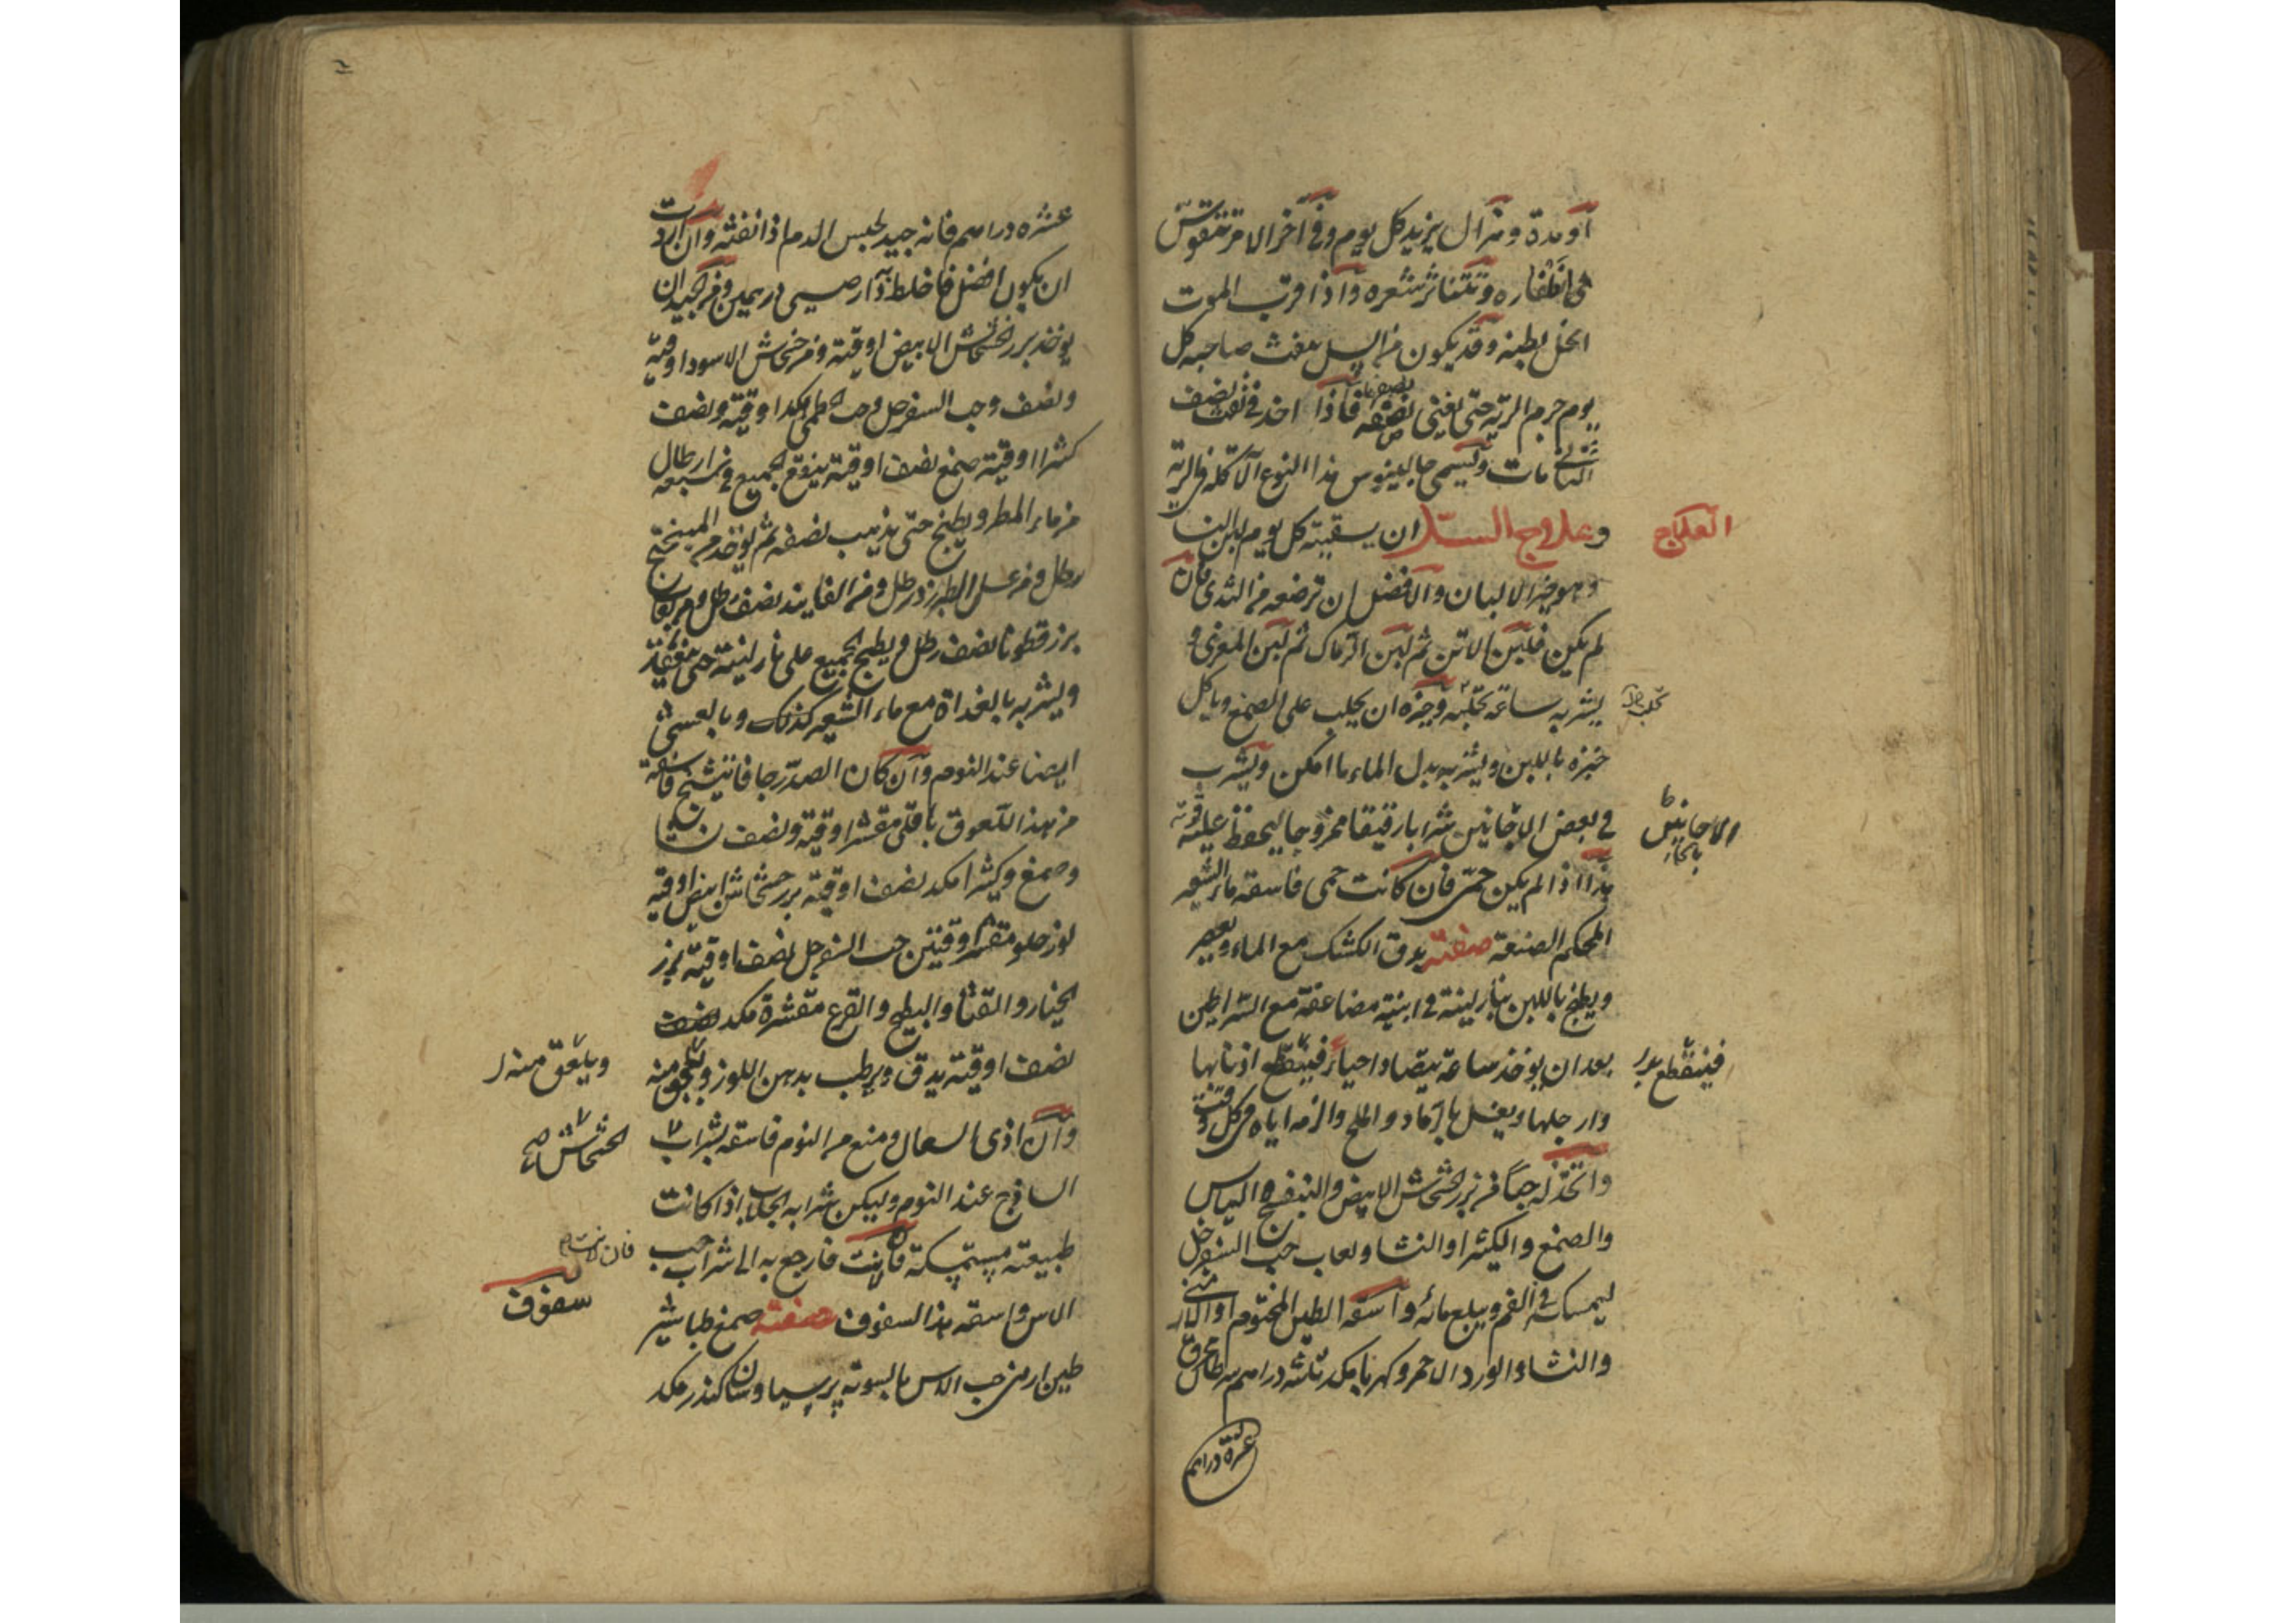 أو مدة وهزال يزيد كل يوم وفي آخر الامر تتقوس
اظفاره وتتناثر شعره واذا قرب الموت
انحل بطنه وقد يكون من السل ينفث صاحبه كل
يوم جرم الرية حتى يفنى نصفه فاذا اخذ في نفث نصف
الثاني مات ويسمي جالينوس هذا النوع الآكلة في الرية
العلاج
وعلاج السل ان يسقيه كل يوم لبن النسا
وهو خير الالبان والافضل ان ترضعه من الثدي فان
لم يكن فلبن الاتن ثم لبن الرماك ثم لبن المعزى و
يشربه ساعة تحلبه وخيره ان يحلب على الصمغ وياكل
خبزه باللبن ويشربه بدل الماء ما امكن ويشرب
في بعض الاحايين شرابا رقيقا ممزوجا ليحفظ عليه قوته
الاحايين
هذا اذا لم يكن حمى فان كانت حمى فاسقه ماء الشعير
المحكم الصنعة صفته يدق الكشك مع الماء ويعصر
ويطبخ باللبن بنار لينة في ابنية مضاعفة مع السراطين
بعد ان يوخذ ساعة يصاد احياء فيقطع اذنابها
وارجلها ويغسل بالرماد والملح والزمه اياه في كل وقت
واتخذ له حبا من بزر الخشخاش الابيض والبنفسج اليابس
والصمغ والكثيرا والنشا ولعاب حب السفرجل
ليمسك في الفم ويبلع مائه واسقه الطين المختوم او الارمني
والنشا والورد الاحمر وكهربا مكد ثلثة دراهم سرطان محرق
عشرة دراهم
عشره دراهم فانه جيد لحبس الدم اذا نفثه وان اردت
ان يكون افضل فاخلط دار صيني درهمين ومن الجيد ان
يوخذ بزر الخشخاش الابيض اوقية ومن خشخاش الاسود اوقية
ونصف وحب السفرجل وحب الخطمى مكد اوقية ونصف
كثيرا اوقية صمغ نصف اوقية ينقع الجميع في سبعة ارطال
من ماء المطر ويطبخ حتى يذهب نصفه ثم يوخذ من الميبختج
رطل ومن عسل الطبرزد رطل ومن الفانيد نصف رطل ومن لعاب
بزر قطونا نصف رطل ويطبخ الجميع على نار لينة حتى ينعقد
ويشربه بالغداة مع ماء الشعير كذلك وبالعشي
ايضا عند النوم وان كان الصدر جافا يتشنج فاسقه
من هذا اللعوق باقلى مقشر اوقية ونصف نشا
وصمغ وكثيرا مكد نصف اوقية بزر خشخاش ابيض اوقية
لوز حلو مقشر اوقيتين حب السفرجل نصف اوقية بزر
الخيار والقثا والبطيخ والقرع مقشرة مكد نصف
نصف اوقية يدق ويرطب بدهن اللوز ويلعق منه
ويلعق منه
وان اذى السعال ومنع من النوم فاسقه بشراب
الخشخاش صح
الساذج عند النوم وليكن شرابه الجلاب اذا كانت
طبيعته مستمسكة فان لانت فارجع به الى شراب حب
فان لانت
الاس واسقه هذا السفوف صفته صمغ طباشير
سفوف
طين ارمنى حب الاس بالسوية برسياوشان كندر مكد